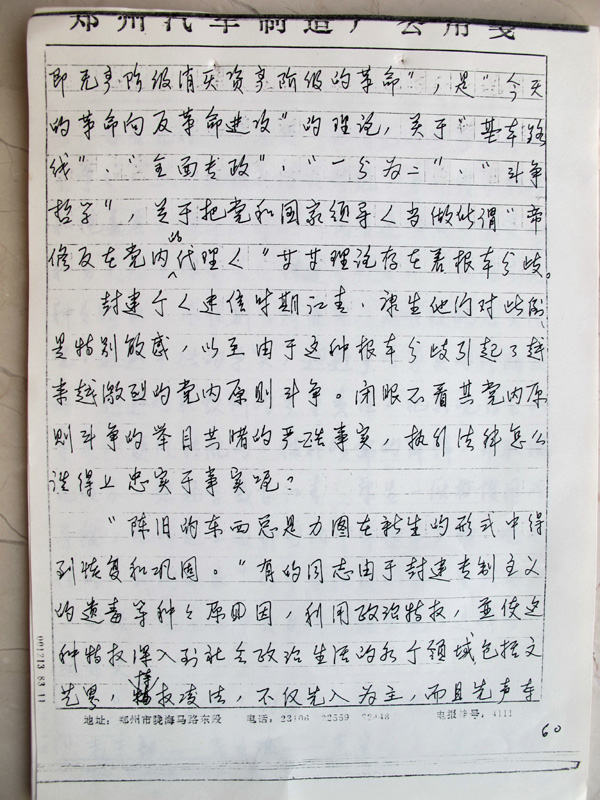 郑州汽车制造厂公用笺
即无产阶级消灭资产阶级的革命”，是“今天
的革命向反革命进攻”的理论，关于“基本路
线”、“全面专政”、“一分为二”、“斗争
哲学”，关于把党和国家领导人当做所谓“帝
修反在党内的代理人”理论存在着根本分歧。
封建个人迷信时期江青、康生他们对此倒
是特别敏感，以至由于这种根本分歧引起了越
来越激烈的党内原则斗争。闭眼不看其党内原
则斗争的举目共睹的严酷事实，援引法律怎么
谈得上忠实于事实呢？
“陈旧的东西总是力图在新生的形式中得
到恢复和巩固。”有的同志由于封建专制主义
的遗毒等种々原因，利用政治特权，并使这
种特权深入到社会政治生活的各个领域包括文
艺界，权凌法，不仅先入为主，而且先声夺
地址：郑州市陇海马路东段 电话：23106 22559 电报挂号：4111
001713 83.11
60